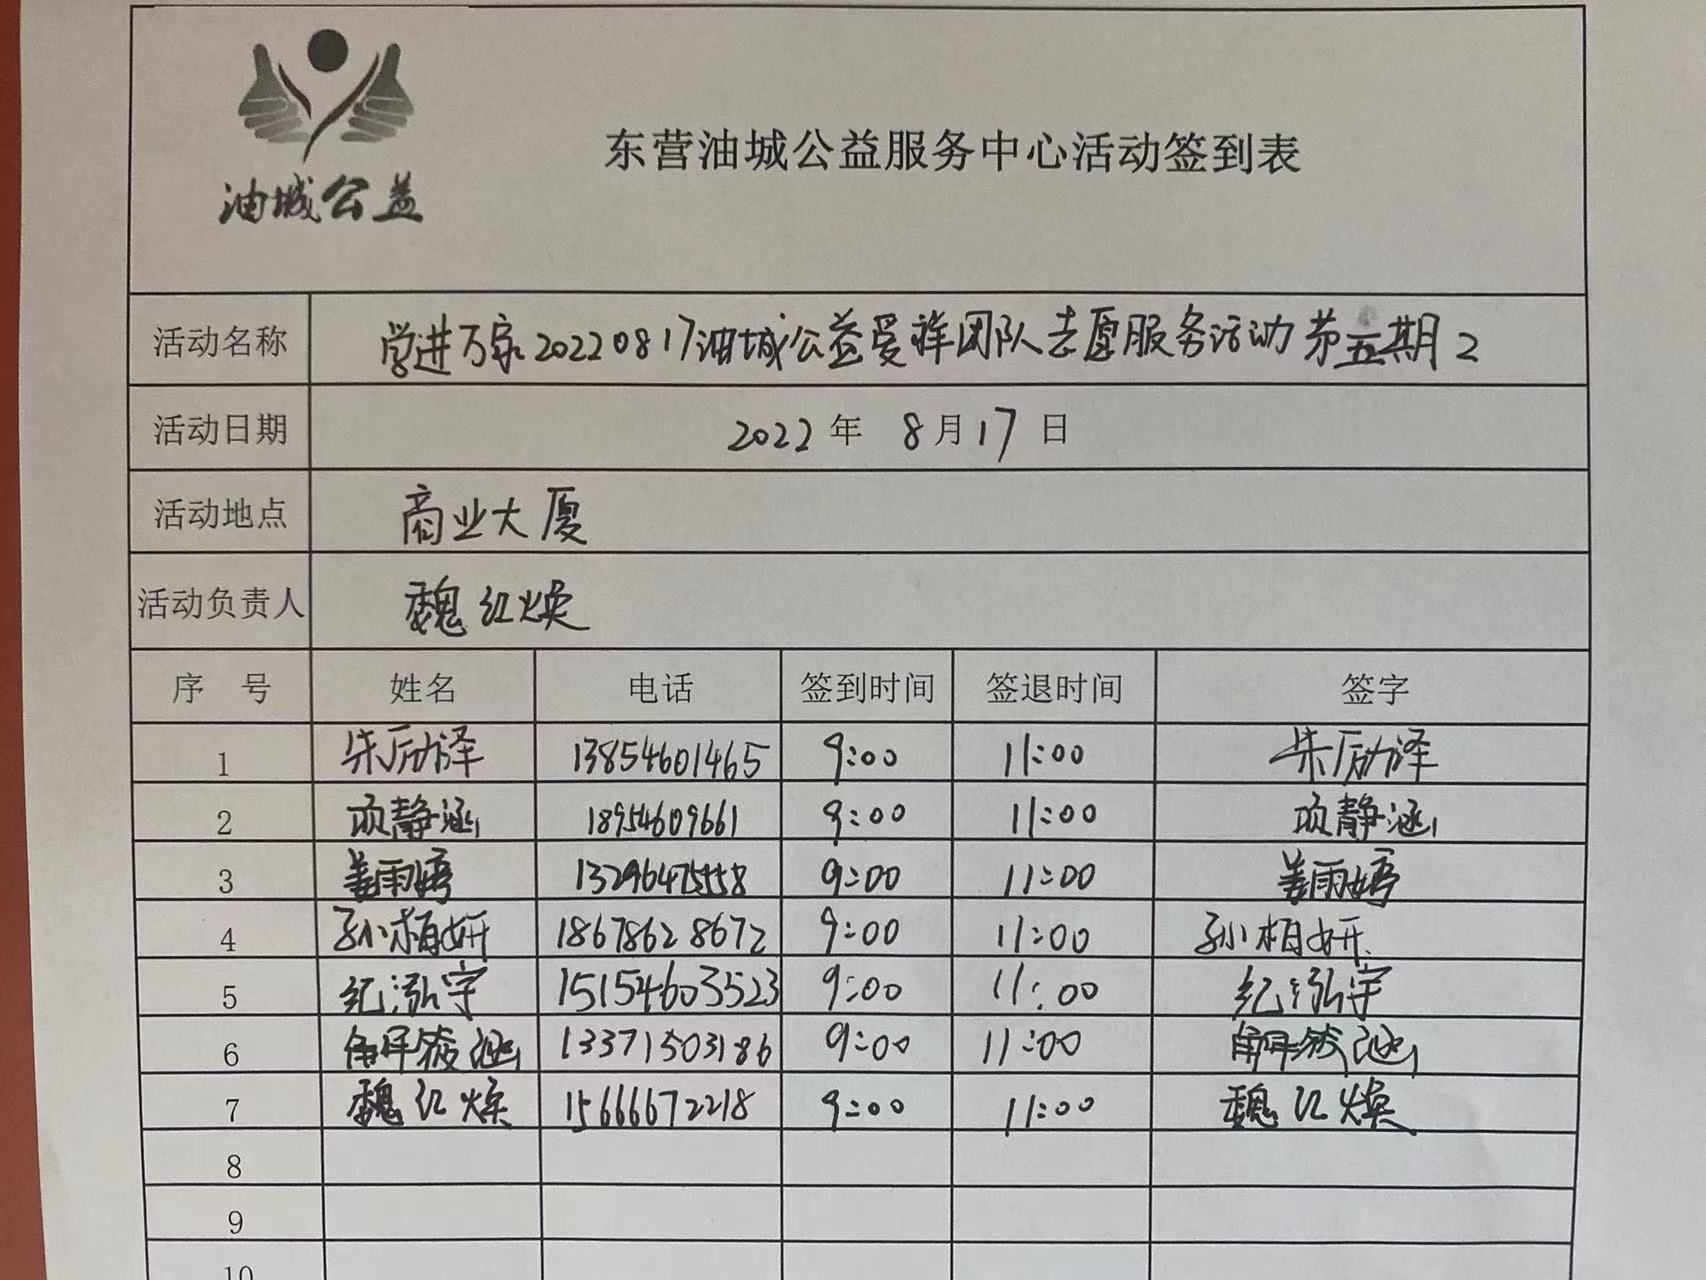 油城公益
东营油城公益服务中心活动签到表
活动名称 学进万家20220817油城公益爱祥团队志愿服务活动第五期2
活动日期 2022年 8月17日
活动地点 商业大厦
活动负责人 魏红焕
序 号 姓名 电话 签到时间 签退时间 签字
1 朱励泽 13854601465 9:00 11:00 朱励泽
2 项静涵 18954609661 9:00 11:00 项静涵
3 姜雨婷 9:00 11:00 姜雨婷
4 孙栢妍 18678628672 9:00 11:00 孙栢妍
5 纪泓宇 15154603523 9:00 11:00 纪泓宇
6 涵 13371503186 9:00 11:00 涵
7 魏红焕 15666672218 9:00 11:00 魏红焕
8
9
10